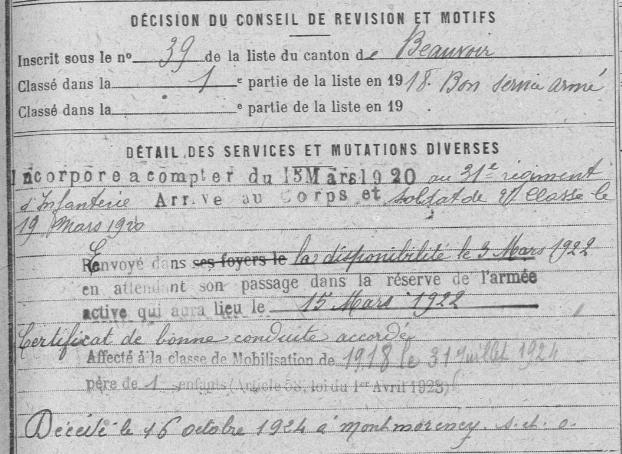 DÉCISION DU CONSEIL DE REVISION ET MOTIFS
Inscrit sous le nº 39 de la liste du canton de Beauvoir
Classé dans la 1 e partie de la liste en 1918. Bon service armé
Classé dans la e partie de la liste en 19
DÉTAIL DES SERVICES ET MUTATIONS DIVERSES
Incorporé a compter du 15 Mars 1920 au 31e régiment
d'Infanterie Arrivé au Corps et soldat de 2e Classe le
19 Mars 1920
Renvoyé dans ses foyers le la disponibilité le 3 Mars 1922
en attendant son passage dans la réserve de l'armée
active qui aura lieu le 15 Mars 1922
Certificat de bonne conduite accordé
Affecté à la classe de Mobilisation de 1918 le 31 Juillet 1924
père de 1 enfants (Article 58, loi du 1er Avril 1923)
Décédé le 16 octobre 1924 à Montmorency. s. t. o.